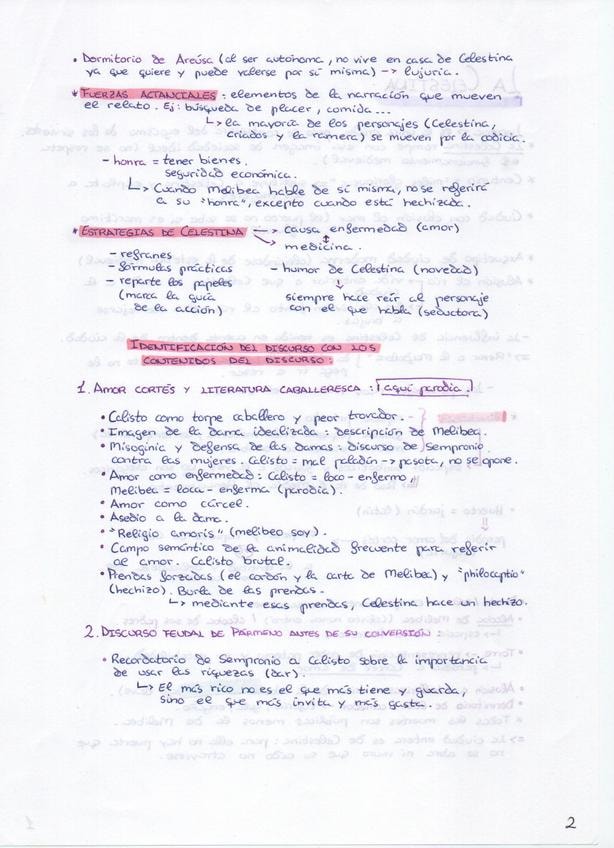 • Dormitorio de Areúsa (al ser autónoma, no vive en casa de Celestina
ya que quiere y puede valerse por sí misma) -> lujuria.
* FUERZAS ACTANCIALES: elementos de la narración que mueven
el relato. Ej: búsqueda de placer, comida...
↳ la mayoría de los personajes (Celestina,
criados y la ramera) se mueven por la codicia.
- honra = tener bienes.
seguridad económica.
↳ Cuando Melibea hable de sí misma, no se referirá
a su "honra", excepto cuando está hechizada.
* ESTRATEGIAS DE CELESTINA -> causa enfermedad (amor)
↕
-> medicina.
- refranes
- fórmulas prácticas
- reparte los papeles
(marca la guía
de la acción)
- humor de Celestina (novedad)
↓
siempre hace reír al personaje
con el que habla (seductora)
IDENTIFICACIÓN DEL DISCURSO CON LOS
CONTENIDOS DEL DISCURSO:
1. AMOR CORTÉS Y LITERATURA CABALLERESCA: ¡aquí parodia!
• Calisto como torpe caballero y peor trovador.
• Imagen de la dama idealizada: descripción de Melibea.
• Misoginia y defensa de las damas: discurso de Sempronio
contra las mujeres. Calisto = mal paladín -> pasota, no se opone.
• Amor como enfermedad: Calisto = loco - enfermo //
Melibea = loca - enferma (parodia).
• Amor como cárcel.
• Asedio a la dama.
• "Religio amoris" (melibeo soy).
• Campo semántico de la animalidad frecuente para referir
al amor. Calisto brutal.
• Prendas forzadas (el cordón y la carta de Melibea) y "philocaptio"
(hechizo). Burla de las prendas.
↳ mediante esas prendas, Celestina hace un hechizo.
2. DISCURSO FEUDAL DE PÁRMENO ANTES DE SU CONVERSIÓN:
• Recordatorio de Sempronio a Calisto sobre la importancia
de usar las riquezas (dar).
↳ El más rico no es el que más tiene y guarda,
sino el que más invita y más gasta.
2